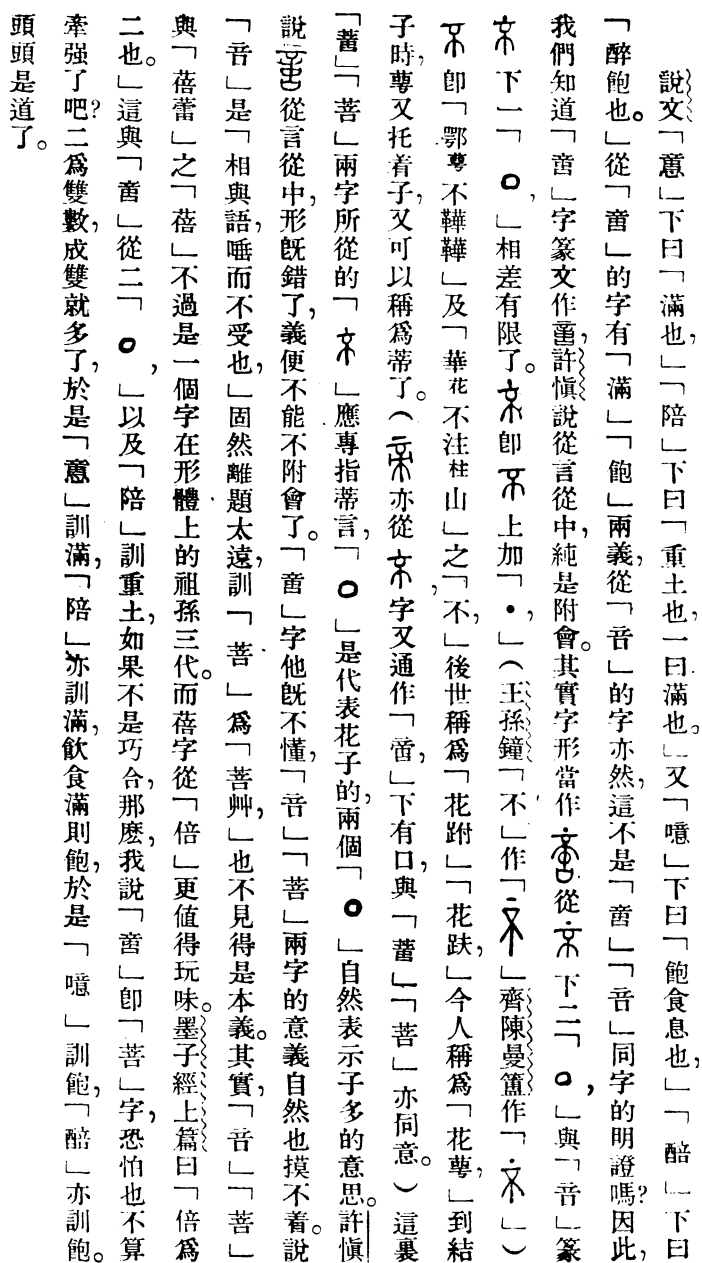 說文「意」下曰「滿也，」「陪」下曰「重土也，一曰滿也。」又「噫」下曰「飽食息也，」「醅」下曰
「醉飽也。」從「啻」的字有「滿」「飽」兩義，從「咅」的字亦然，這不是「啻」「咅」同字的明證嗎？因此，
我們知道「啻」字篆文作，許愼說從言從中，純是附會。其實字形當作從下二「o，」與「咅」篆
下一「o，」相差有限了。卽上加「•，」（王孫鐘「不」作「」齊陳曼簠作「」）
卽「鄂萼不鞾韡」及「華花不注柱山」之「不，」後世稱爲「花跗」「花趺，」今人稱爲「花萼，」到結
子時，萼又托着子，又可以稱爲蒂了。（亦從，字又通作「啻，」下有口，與「蓄」「菩」亦同意。）這裏
「蓄」「菩」兩字所從的「」應專指蒂言，「o」是代表花子的，兩個「o」自然表示子多的意思。許愼
說從言從中，形旣錯了，義便不能不附會了。「啻」字他旣不懂，「咅」「菩」兩字的意義自然也摸不着。說
「咅」是「相與語，唾而不受也，」固然離題太遠，訓「菩」爲「菩艸，」也不見得是本義。其實，「咅」「菩」
與「蓓蕾」之「蓓」不過是一個字在形體上的祖孫三代。而蓓字從「倍」更値得玩味。墨子經上篇曰「倍爲
二也。」這與「啻」從二「o，」以及「陪」訓重土，如果不是巧合，那麽，我說「啻」卽「菩」字，恐怕也不算
牽强了吧？二爲雙數，成雙就多了，於是「意」訓滿，「陪」亦訓滿，飲食滿則飽，於是「噫」訓飽，「醅」亦訓飽。
頭頭是道了。